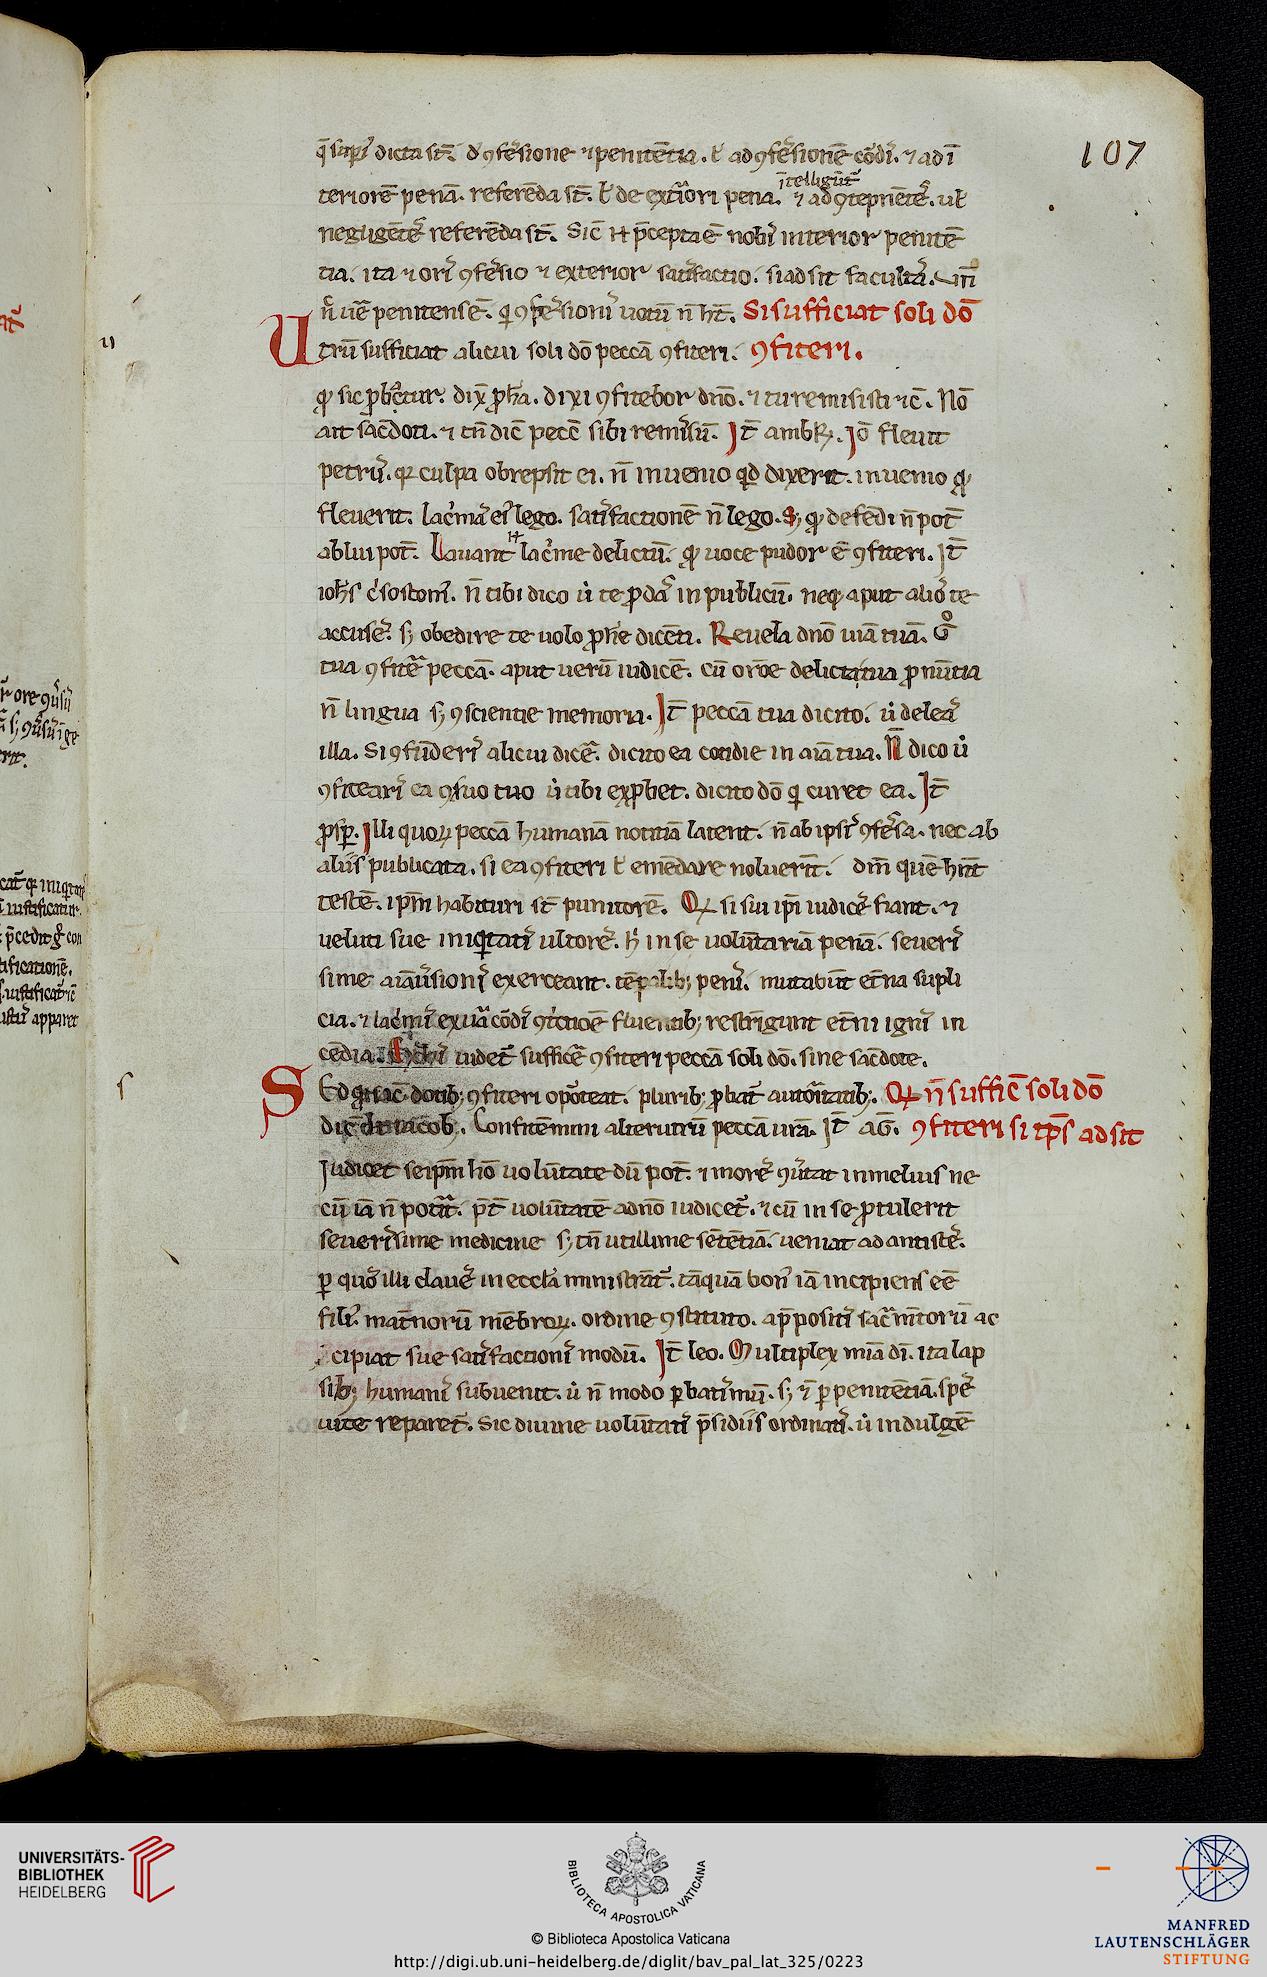 107
q̄ sup̱ᷣ dicta st̄. d̓ ꝯfessione ⁊ penitētia. ł ad ꝯfessionē cōdis. ⁊ ad ī
ītelligūt᷑
teriorē penā. referēda st̄. ł de ext̾iori pena. ⁊ ad ꝯtēpnētes. uł
negligētes referēda st̄. Sic̄ .n. p̄cepta ē nobis interior penitē
tia. ita ⁊ oris ꝯfessio ⁊ exterior satisfactio. si adsit facultas. Vn̄
n̄ ue᷑ penitens ē. qͥ ꝯfessionis uotū n̄ ht̄. Si sufficiat soli dō
Utrū sufficiat alicui soli dō peccā ꝯfiteri. ꝯfiteri.
u
qͩ sic ꝓbet᷑ur. dix̄ ꝓpha. dixi ꝯfitebor dn̄o. ⁊ tu remisisti ⁊c̄. Nō
ait sac̄doti. ⁊ tn̄ dic̄ pecc̄ sibi remissū. It̄ ambꝶ. Iō fleuit
petrus. qꝛ culpa obrepsit ei. n̄ inuenio qͥd dixerit. inuenio qͩ
fleuerit. lac̓mas eiꝰ lego. satisfactionē n̄ lego. Sꝫ qͩ defēdi n̄ pot̄
ablui pot̄. Lauant lac̓me delictū. qͩ uoce pudor ē ꝯfiteri. It̄
ioħs c̓sostomꝰ. n̄ tibi dico ut te ꝓdas in publicū. neqꝫ aput alios te
accuses. sꝫ obedire te uolo ꝓphe dicēti. Reuela dn̄o uiā tuā. Gͦ
tua ꝯfitē peccā. aput uerū iudicē. cū orōe delicta tua ꝓnūtia
n̄ lingua sꝫ ꝯscientie memoria. It̄ peccā tua dicito. ut deleas
illa. Si ꝯfūderis alicui dicē. dicito ea cotidie in aīa tua. N̄ dico ut
ꝯfitearis ea ꝯseruo tuo ut tibi exꝓbet. dicito dō qͥ curet ea. It̄
ꝓsꝑ. Illi quoꝝ peccā humanā notitiā latent. n̄ ab ipsis ꝯfessa. nec ab
aliis publicata. si ea ꝯfiteri ł emēdare noluerīt. dm̄ quē hn̄t
testē. ip̄m habituri st̄ punitorē. Qꝛ si sui ip̄i iudices fiant. ⁊
ueluti sue iniqͥtatis ultores. hͥ in se uolūtariā penā. seueris
sime aīaduersionis exerceant. tēpalibꝫ penis. mutabūt et̄na supli
cia. ⁊ lac̓mis ex uera cōdis ꝯt̓tiōe fluentibꝫ restrīgunt et̄ni ignis in
cēdia. iudet᷑ sufficē ꝯfiteri peccā soli dō. sine sac̄dote.
S
Sed qͩ sac̄dotibꝫ ꝯfiteri oporteat. pluribꝫ ꝓbat᷑ autoritatibꝫ. Qꝛ n̄ suffic̄ soli dō
dic̄ iacobꝰ. Confitēmini alterutrū peccā ur̄a. It̄ aḠ. ꝯfiteri si tp̄s adsit
Iudicet seip̄m hō uolūtate dū pot̄. ⁊ mores ꝯuertat in melius ne
cū iā n̄ poterit. p̄t̄ uolūtatē a dn̄o iudicet᷑. ⁊ cū in se ꝓtulerit
seuerissime medicine sꝫ tn̄ utillime sētētiā. ueniat ad antistes.
ꝑ quos illi claues in eccla ministrāt᷑. tāquā bonꝰ iā incipiens ēē
filiꝰ. mat̄norū mēbroꝝ. ordine ꝯstituto. a p̄positis sac̄mētorū ac
cipiat sue satisfactionis modū. It̄ leo. Multiplex mīa di. ita lap
sibꝫ humanis subuenit. ut n̄ modo ꝑ batismū. sꝫ ēt ꝑ penitētiā. spes
uite reparet᷑. Sic diuine uolūtatis p̄sidiis ordinatis. ut indulgē
UNIVERSITÄTS-
BIBLIOTHEK
HEIDELBERG
BIBLIOTECA APOSTOLICA VATICANA
© Biblioteca Apostolica Vaticana
http://digi.ub.uni-heidelberg.de/diglit/bav_pal_lat_325/0223
MANFRED
LAUTENSCHLÄGER
STIFTUNG